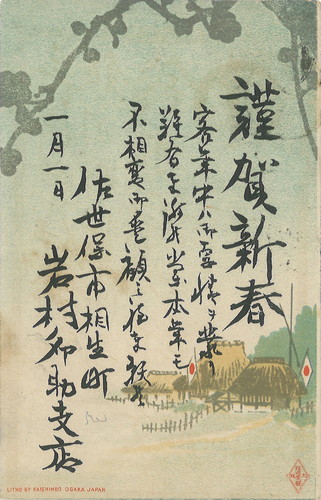 謹賀新春
客年中ハ御厚情ヲ蒙リ
難有奉謝候尚本年モ
不相変御愛顧之程奉願候
一月一日
佐世保市相生町
岩村卯助支店
LITHO BY KAISHINDO OSAKA JAPAN